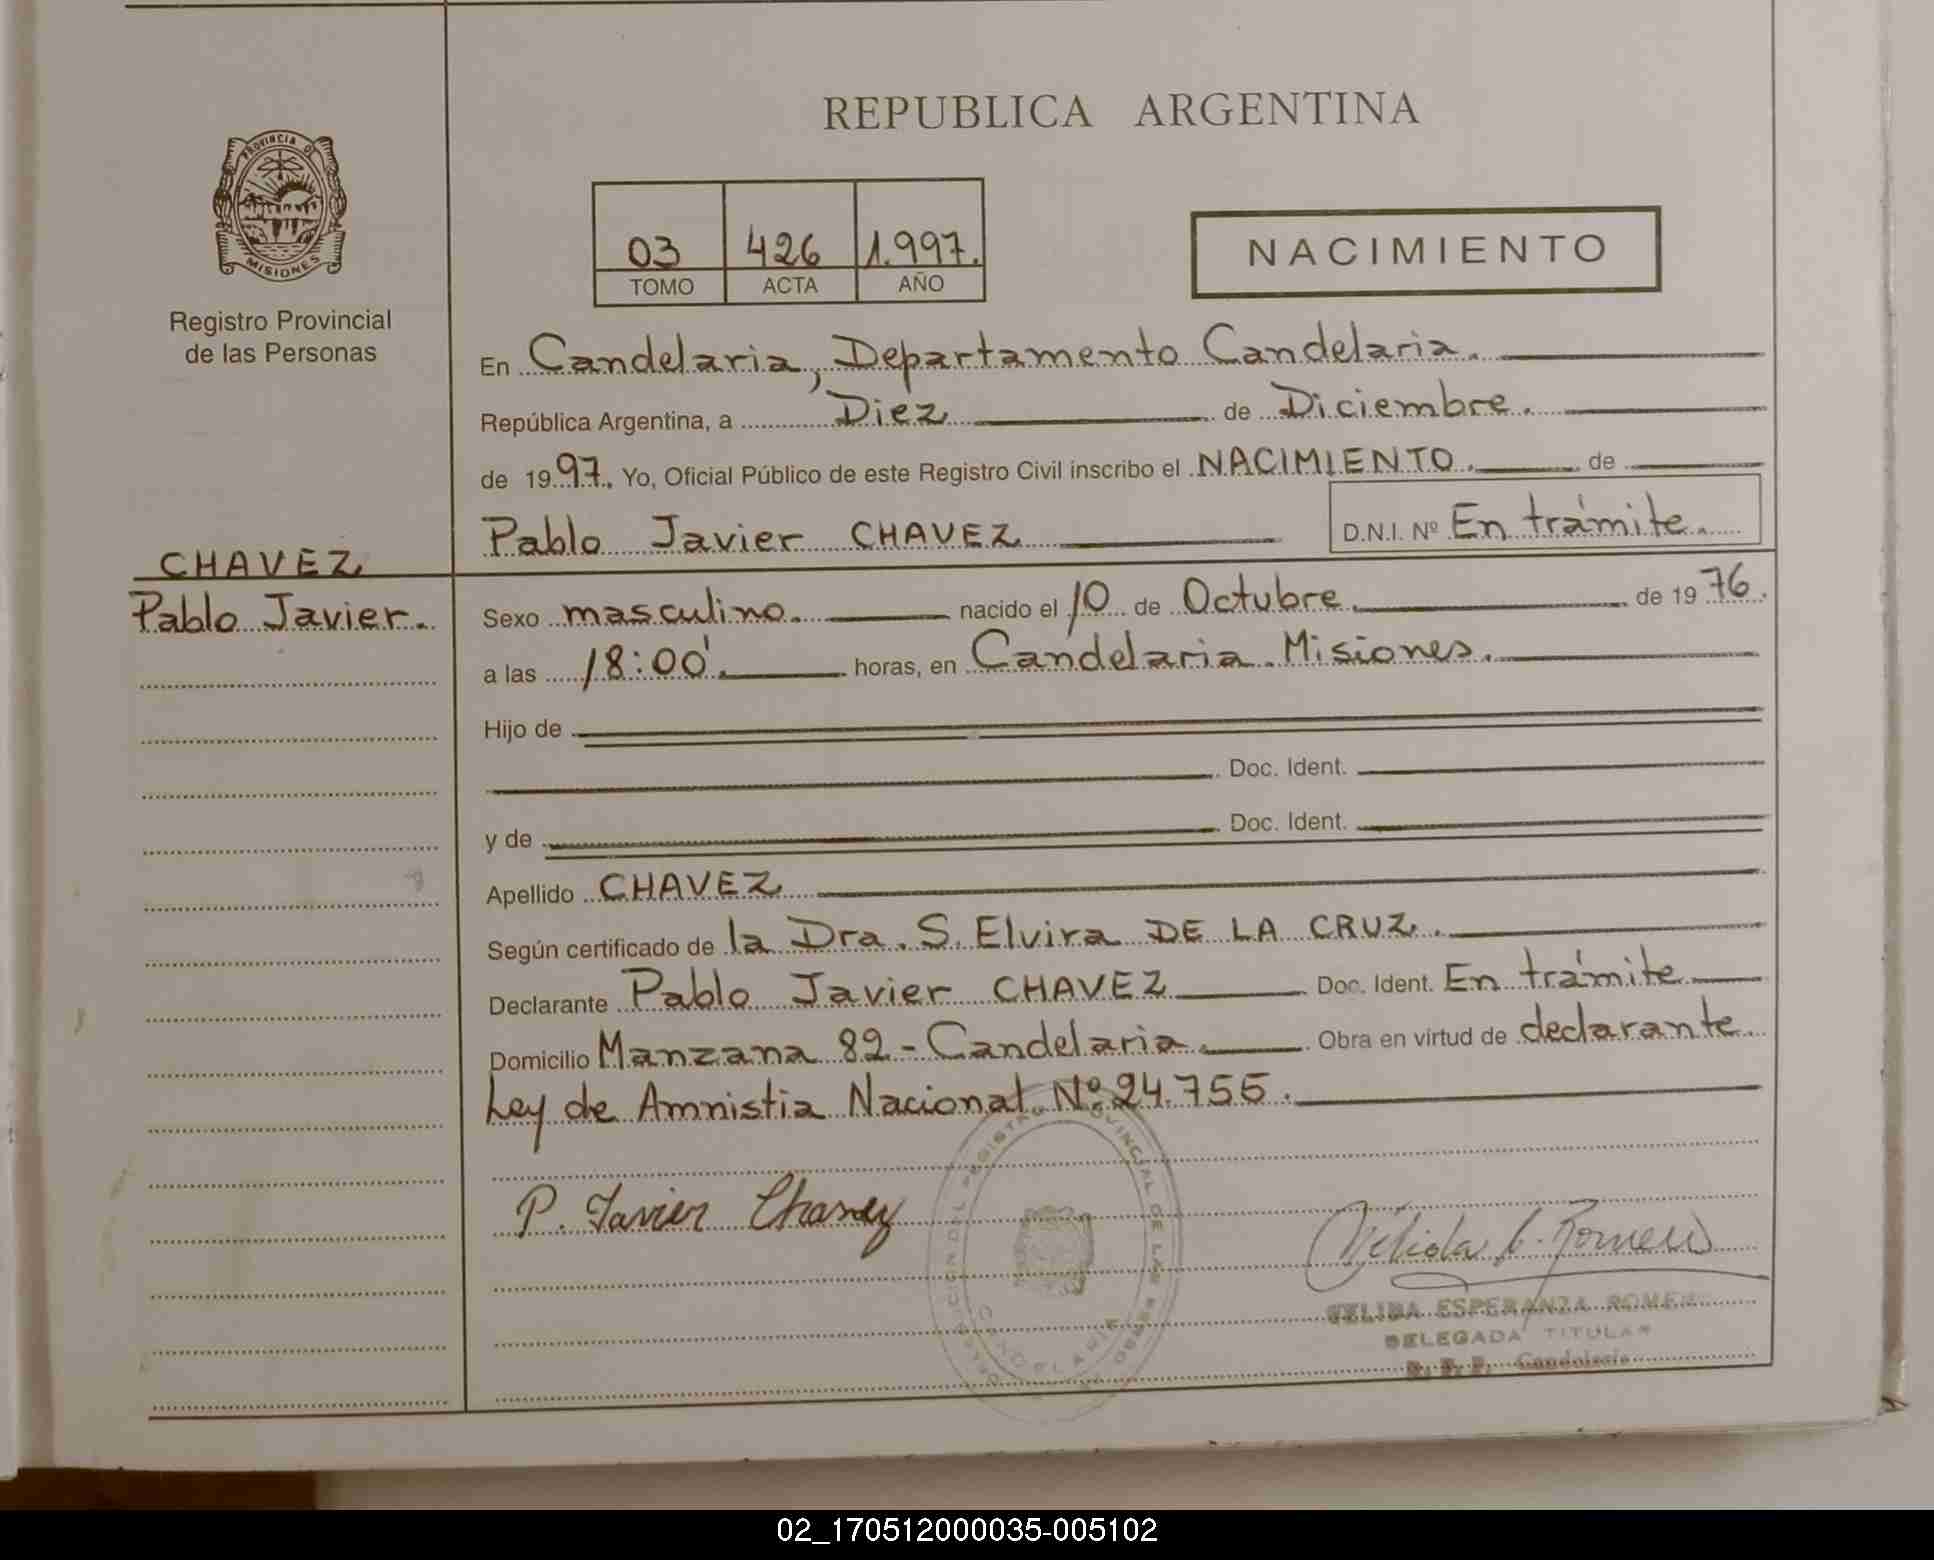 REPUBLICA ARGENTINA
PROVINCIA DE
MISIONES
Registro Provincial
de las Personas
03 426 1.997.
TOMO ACTA AÑO
NACIMIENTO
En Candelaria, Departamento Candelaria.
República Argentina, a Diez de Diciembre.
de 1997. Yo, Oficial Público de este Registro Civil inscribo el NACIMIENTO. de
Pablo Javier CHAVEZ D.N.I. Nº En trámite.
CHAVEZ
Pablo Javier.
Sexo masculino. nacido el 10 de Octubre. de 1976.
a las 18:00'. horas, en Candelaria. Misiones.
Hijo de
Doc. Ident.
y de Doc. Ident.
Apellido CHAVEZ
Según certificado de la Dra. S. Elvira DE LA CRUZ.
Declarante Pablo Javier CHAVEZ Doc. Ident. En trámite
Domicilio Manzana 82 - Candelaria. Obra en virtud de declarante
Ley de Amnistia Nacional Nº 24.755.
P. Javier Chavez
ESPERANZA ROMERO
DELEGADA TITULAR
Candelaria
CANDELARIA
02_170512000035-005102